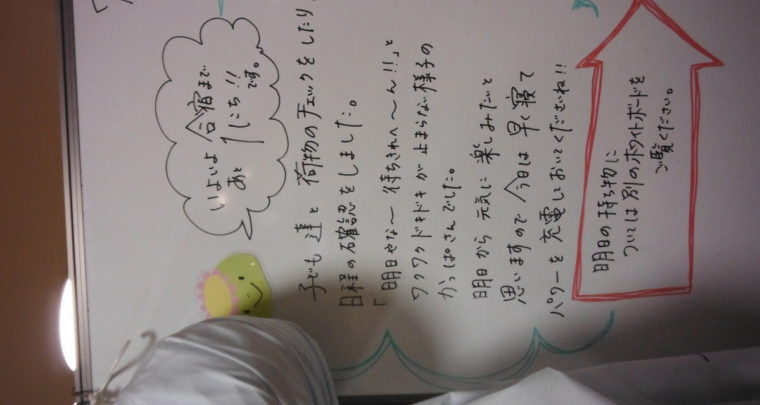 いよいよ合宿まで
あと1にち!!
です。
子ども達と荷物のチェックをしたり、
日程の確認をしました。
「明日やな〜待ちきれへ〜ん!!」と
ワクワクドキドキが止まらない様子の
かっぱさんでした。
明日から元気に楽しみたいと
思いますので今日は早く寝て
パワーを充電しておいてくださいね!!
明日の持ち物に
ついては別のホワイトボードを
ご覧ください。